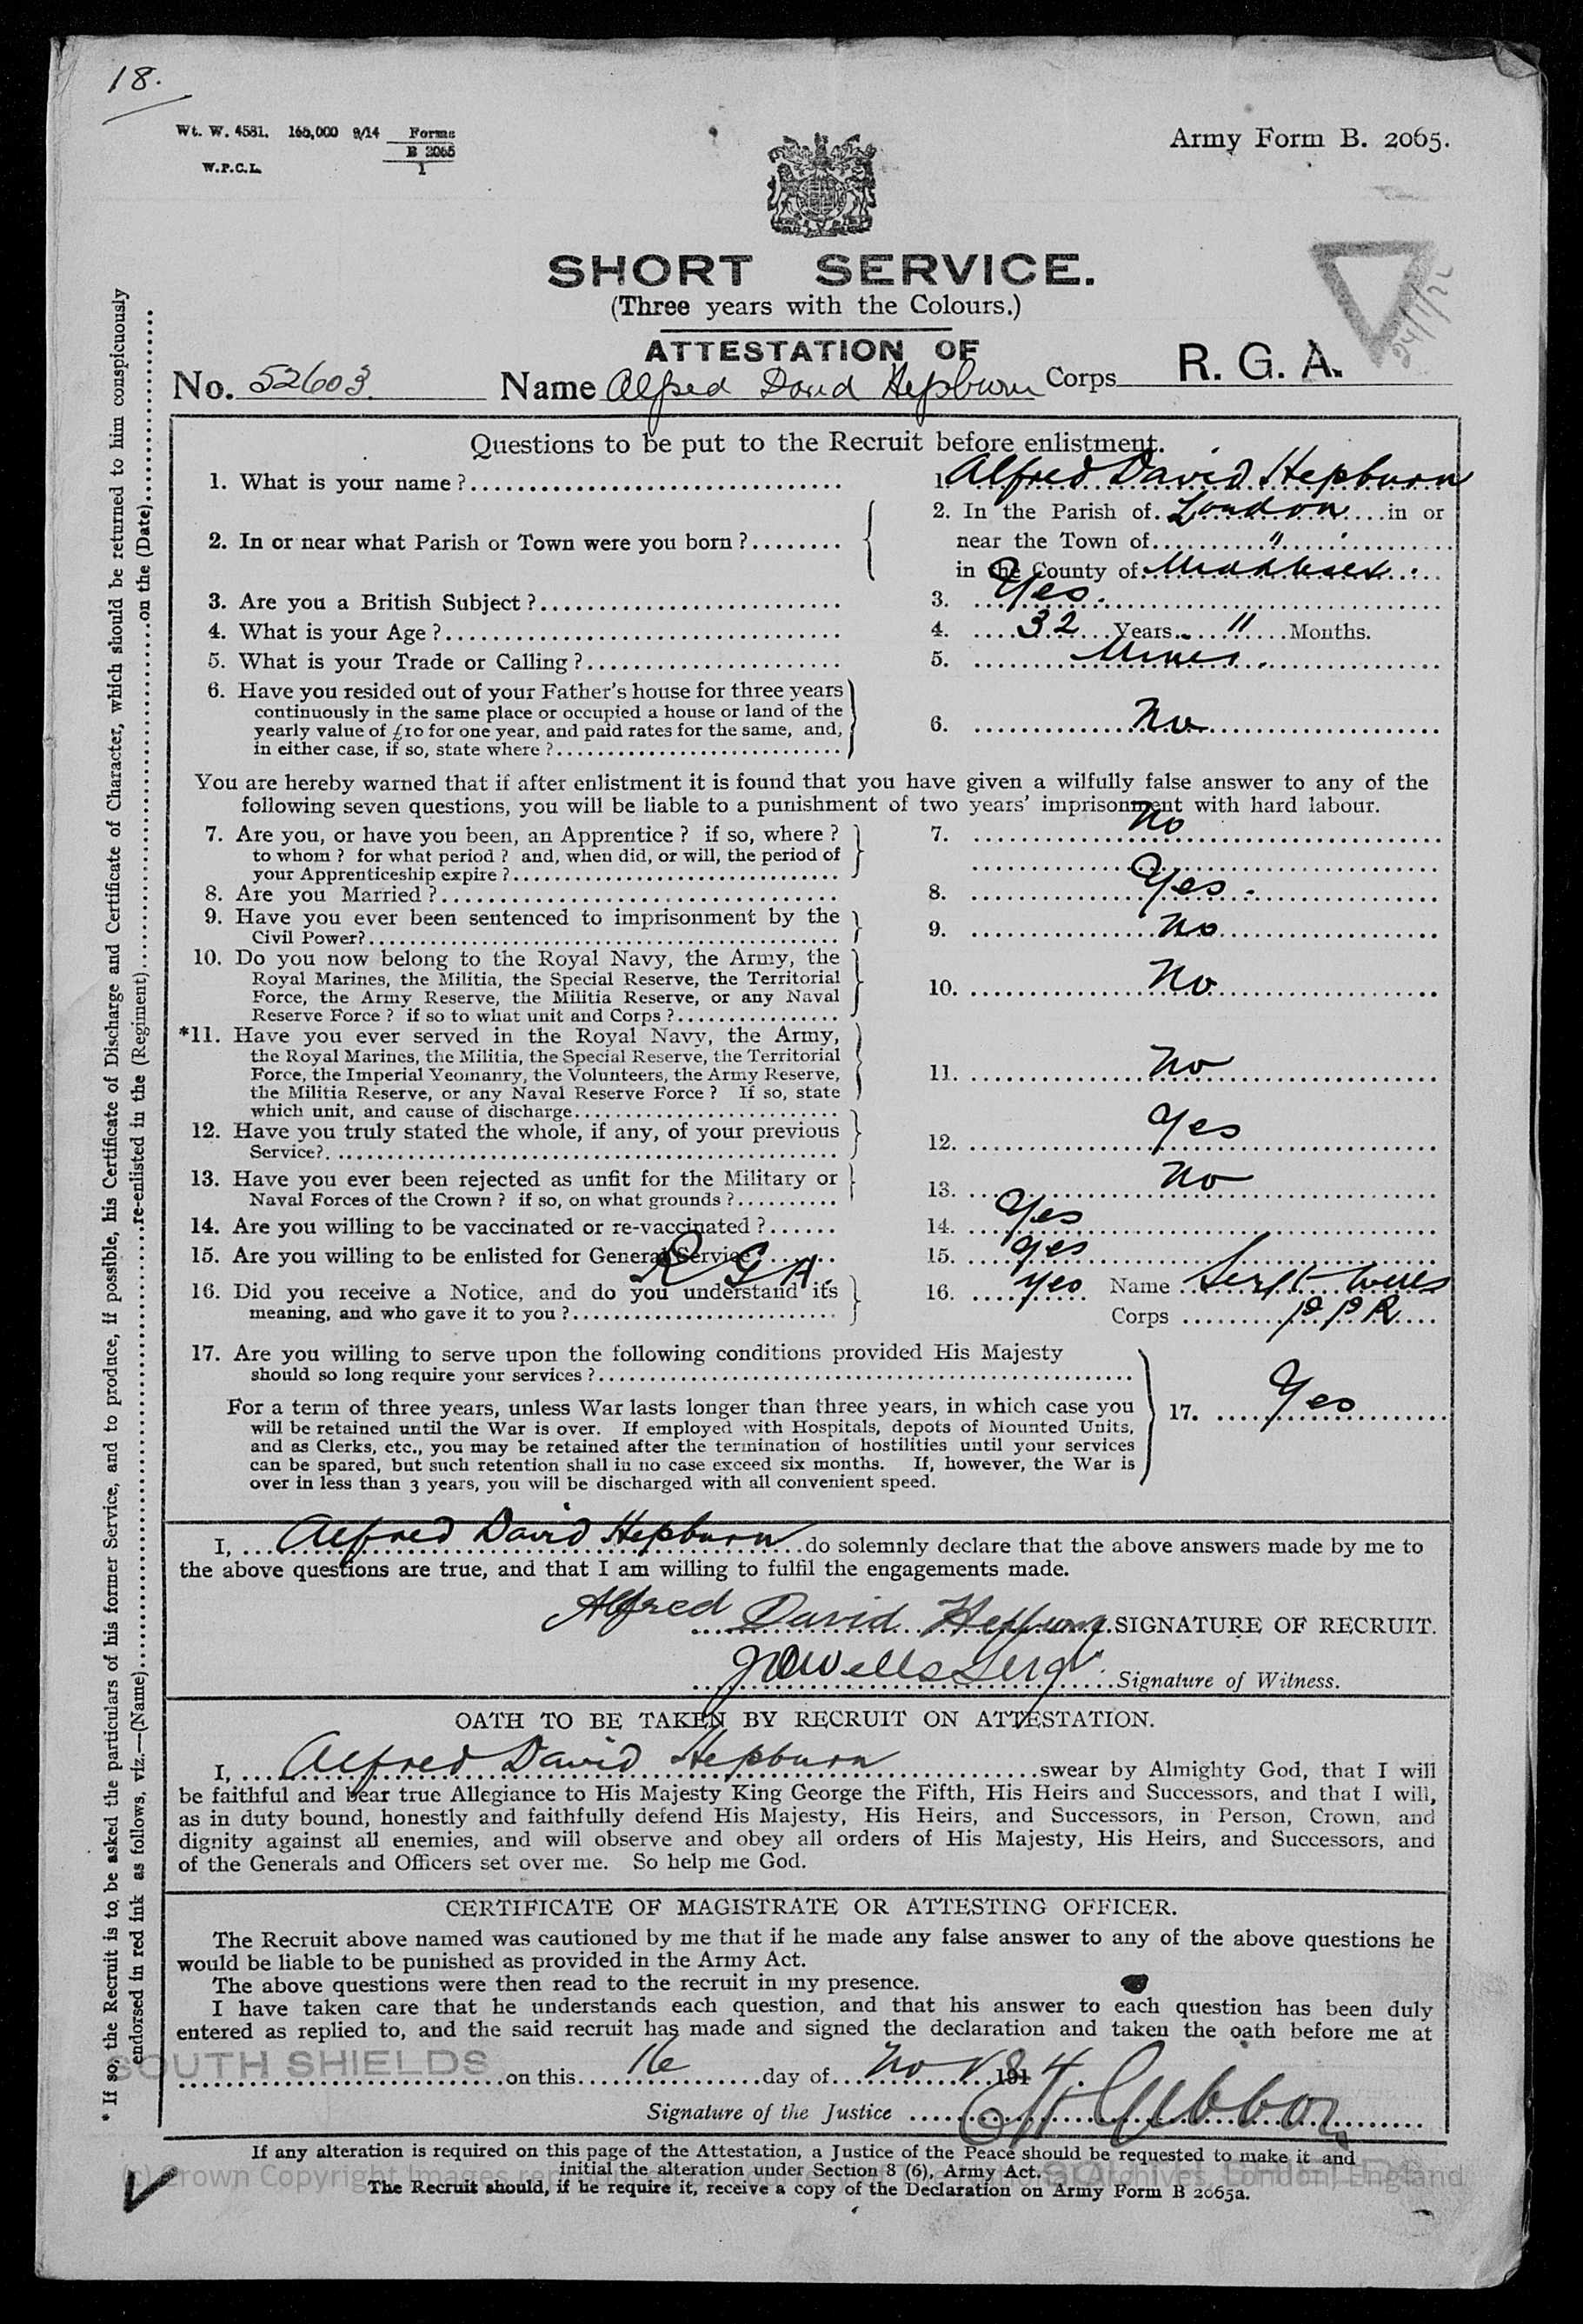 18.
Wt. W. 4581. 165,000 9/14 Forms
B 2065
1
W.P.C.L.
Army Form B. 2065.
SHORT SERVICE.
(Three years with the Colours.)
24/1/22
ATTESTATION OF
No. 52603 Name Alfred David Hepburn Corps R. G. A.
Questions to be put to the Recruit before enlistment.
1. What is your name? 1. Alfred David Hepburn
2. In or near what Parish or Town were you born? 2. In the Parish of London in or
near the Town of "
in the County of Middlesex
3. Are you a British Subject? 3. Yes.
4. What is your Age? 4. 32 Years 11 Months.
5. What is your Trade or Calling? 5. Miner.
6. Have you resided out of your Father's house for three years
continuously in the same place or occupied a house or land of the
yearly value of £10 for one year, and paid rates for the same, and,
in either case, if so, state where? 6. No
You are hereby warned that if after enlistment it is found that you have given a wilfully false answer to any of the
following seven questions, you will be liable to a punishment of two years' imprisonment with hard labour.
7. Are you, or have you been, an Apprentice? if so, where? 7. No
to whom? for what period? and, when did, or will, the period of
your Apprenticeship expire?
8. Are you Married? 8. Yes.
9. Have you ever been sentenced to imprisonment by the
Civil Power? 9. No
10. Do you now belong to the Royal Navy, the Army, the
Royal Marines, the Militia, the Special Reserve, the Territorial
Force, the Army Reserve, the Militia Reserve, or any Naval
Reserve Force? if so to what unit and Corps? 10. No
*11. Have you ever served in the Royal Navy, the Army,
the Royal Marines, the Militia, the Special Reserve, the Territorial
Force, the Imperial Yeomanry, the Volunteers, the Army Reserve,
the Militia Reserve, or any Naval Reserve Force? If so, state
which unit, and cause of discharge 11. No
12. Have you truly stated the whole, if any, of your previous
Service? 12. Yes
13. Have you ever been rejected as unfit for the Military or
Naval Forces of the Crown? if so, on what grounds? 13. No
14. Are you willing to be vaccinated or re-vaccinated? 14. Yes
15. Are you willing to be enlisted for General Service? 15. Yes
R G A.
16. Did you receive a Notice, and do you understand its
meaning, and who gave it to you? 16. Yes Name Sergt Wells
Corps
17. Are you willing to serve upon the following conditions provided His Majesty
should so long require your services?
For a term of three years, unless War lasts longer than three years, in which case you
will be retained until the War is over. If employed with Hospitals, depots of Mounted Units,
and as Clerks, etc., you may be retained after the termination of hostilities until your services
can be spared, but such retention shall in no case exceed six months. If, however, the War is
over in less than 3 years, you will be discharged with all convenient speed.
17. Yes
I, Alfred David Hepburn do solemnly declare that the above answers made by me to
the above questions are true, and that I am willing to fulfil the engagements made.
Alfred David Hepburn SIGNATURE OF RECRUIT.
Wells Sergt Signature of Witness.
OATH TO BE TAKEN BY RECRUIT ON ATTESTATION.
I, Alfred David Hepburn swear by Almighty God, that I will
be faithful and bear true Allegiance to His Majesty King George the Fifth, His Heirs and Successors, and that I will,
as in duty bound, honestly and faithfully defend His Majesty, His Heirs, and Successors, in Person, Crown, and
dignity against all enemies, and will observe and obey all orders of His Majesty, His Heirs, and Successors, and
of the Generals and Officers set over me. So help me God.
CERTIFICATE OF MAGISTRATE OR ATTESTING OFFICER.
The Recruit above named was cautioned by me that if he made any false answer to any of the above questions he
would be liable to be punished as provided in the Army Act.
The above questions were then read to the recruit in my presence.
I have taken care that he understands each question, and that his answer to each question has been duly
entered as replied to, and the said recruit has made and signed the declaration and taken the oath before me at
SOUTH SHIELDS on this 16 day of Nov 1914.
Signature of the Justice
If any alteration is required on this page of the Attestation, a Justice of the Peace should be requested to make it and
initial the alteration under Section 8 (6), Army Act.
The Recruit should, if he require it, receive a copy of the Declaration on Army Form B 2065a.
* If so, the Recruit is to be asked the particulars of his former Service, and to produce, if possible, his Certificate of Discharge and Certificate of Character, which should be returned to him conspicuously
endorsed in red ink as follows, viz.—(Name) re-enlisted in the (Regiment) on the (Date)